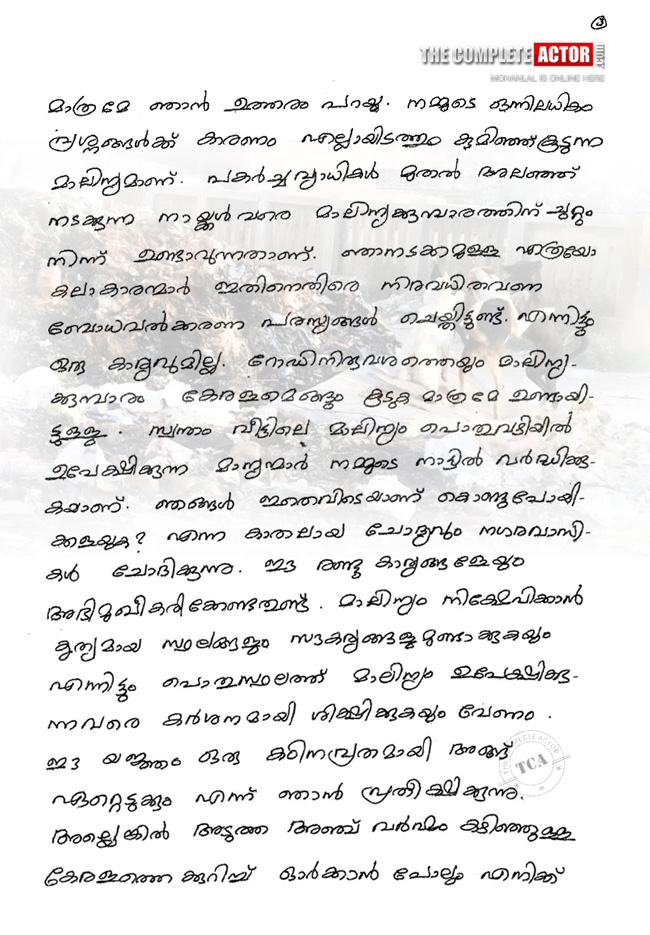 3
THE COMPLETE ACTOR
MOHANLAL IS ONLINE HERE
മാത്രമേ ഞാൻ ഉത്തരം പറയൂ. നമ്മുടെ ഒന്നിലധികം
പ്രശ്നങ്ങൾക്ക് കാരണം എല്ലായിടത്തും കുമിഞ്ഞ്കൂടുന്ന
മാലിന്യമാണ്. പകർച്ചവ്യാധികൾ മുതൽ അലഞ്ഞ്
നടക്കുന്ന നായ്ക്കൾ വരെ മാലിന്യക്കൂമ്പാരത്തിന് ചുറ്റും
നിന്ന് ഉണ്ടാവുന്നതാണ്. ഞാനടക്കമുള്ള എത്രയോ
കലാകാരന്മാർ ഇതിനെതിരെ നിരവധിതവണ
ബോധവൽക്കരണ പരസ്യങ്ങൾ ചെയ്തിട്ടുണ്ട്. എന്നിട്ടും
ഒരു കാര്യവുമില്ല. റോഡിനിരുവശത്തെയും മാലിന്യ-
ക്കൂമ്പാരം കേരളമെങ്ങും കൂടുക മാത്രമേ ഉണ്ടായി-
ട്ടുള്ളൂ. സ്വന്തം വീട്ടിലെ മാലിന്യം പൊതുവഴിയിൽ
ഉപേക്ഷിക്കുന്ന മാന്യന്മാർ നമ്മുടെ നാട്ടിൽ വർദ്ധിക്കു-
കയാണ്. ഞങ്ങൾ ഇതെവിടെയാണ് കൊണ്ടുപോയി-
ക്കളയുക? എന്ന കാതലായ ചോദ്യവും നഗരവാസി-
കൾ ചോദിക്കുന്നു. ഈ രണ്ടു കാര്യങ്ങളേയും
അഭിമുഖീകരിക്കേണ്ടതുണ്ട്. മാലിന്യം നിക്ഷേപിക്കാൻ
കൃത്യമായ സ്ഥലങ്ങളും സൗകര്യങ്ങളുമുണ്ടാക്കുകയും
എന്നിട്ടും പൊതുസ്ഥലത്ത് മാലിന്യം ഉപേക്ഷിക്കു-
ന്നവരെ കർശനമായി ശിക്ഷിക്കുകയും വേണം.
ഈ യജ്ഞം ഒരു കഠിനവ്രതമായി അങ്ങ്
ഏറ്റെടുക്കും എന്ന് ഞാൻ പ്രതീക്ഷിക്കുന്നു.
അല്ലെങ്കിൽ അടുത്ത അഞ്ച് വർഷം കഴിഞ്ഞുള്ള
കേരളത്തെക്കുറിച്ച് ഓർക്കാൻ പോലും എനിക്ക്
THE COMPLETE ACTOR
TCA